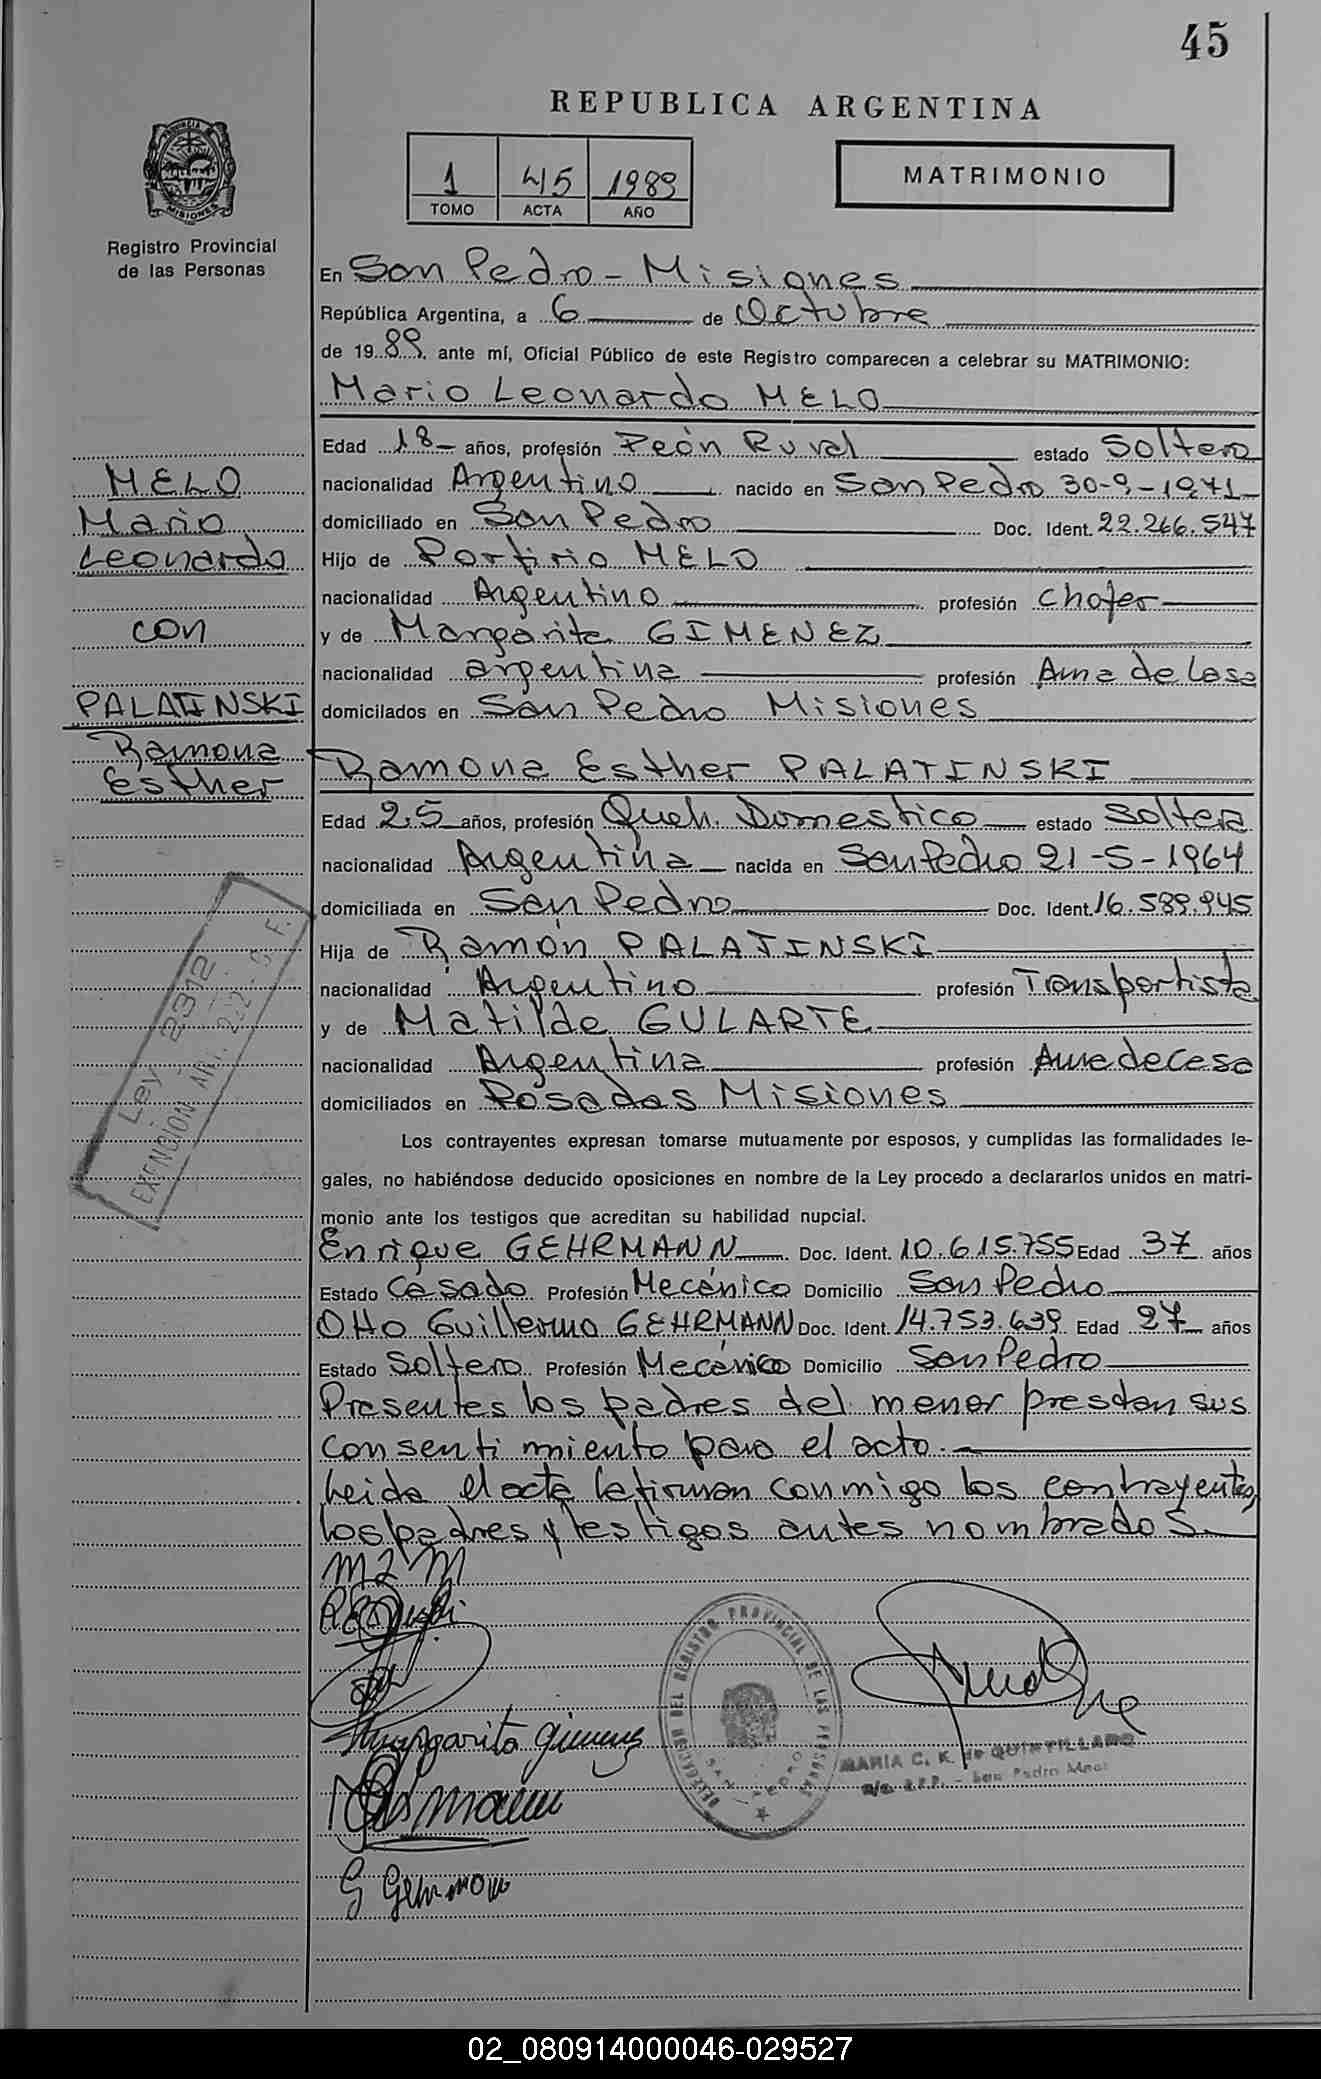 45
REPUBLICA ARGENTINA
PROVINCIA DE MISIONES
Registro Provincial
de las Personas
1 45 1989
TOMO ACTA AÑO
MATRIMONIO
En San Pedro - Misiones
República Argentina, a 6 de Octubre
de 1989. ante mí, Oficial Público de este Registro comparecen a celebrar su MATRIMONIO:
Mario Leonardo MELO
Edad 18 años, profesión Peón Rural estado Soltero
nacionalidad Argentino nacido en San Pedro 30-9-1971
domiciliado en San Pedro Doc. Ident. 22.266.547
Hijo de Porfirio MELO
nacionalidad Argentino profesión Chofer
y de Margarita GIMENEZ
nacionalidad argentina profesión Ama de Casa
domicilados en San Pedro Misiones
MELO
Mario
Leonardo
con
PALATINSKI
Ramona
Esther
Ramona Esther PALATINSKI
Edad 25 años, profesión Queh. Domestico estado Soltera
nacionalidad Argentina nacida en San Pedro 21-5-1964
domiciliada en San Pedro Doc. Ident. 16.589.945
Hija de Ramón PALATINSKI
nacionalidad Argentino profesión Transportista
y de Matilde GULARTE
nacionalidad Argentina profesión Ama de Casa
domiciliados en Posadas Misiones
Ley 2312
EXENCION Art. 222 - S. F.
Los contrayentes expresan tomarse mutuamente por esposos, y cumplidas las formalidades le-
gales, no habiéndose deducido oposiciones en nombre de la Ley procedo a declararlos unidos en matri-
monio ante los testigos que acreditan su habilidad nupcial.
Enrique GEHRMANN Doc. Ident. 10.615.755 Edad 37 años
Estado Casado Profesión Mecánico Domicilio San Pedro
Otto Guillermo GEHRMANN Doc. Ident. 14.753.639 Edad 27 años
Estado Soltero Profesión Mecánico Domicilio San Pedro
Presentes los padres del menor prestan sus
consentimiento para el acto.
Leida el acta la firman conmigo los contrayentes,
los padres y testigos antes nombrados
M L M
Margarita Gimenez
G Gehrmann
DELEGACION DEL REGISTRO PROVINCIAL DE LAS PERSONAS
SAN PEDRO
MARIA C. K. de QUINTILLANO
R.P.P. - San Pedro Mnes
02_080914000046-029527